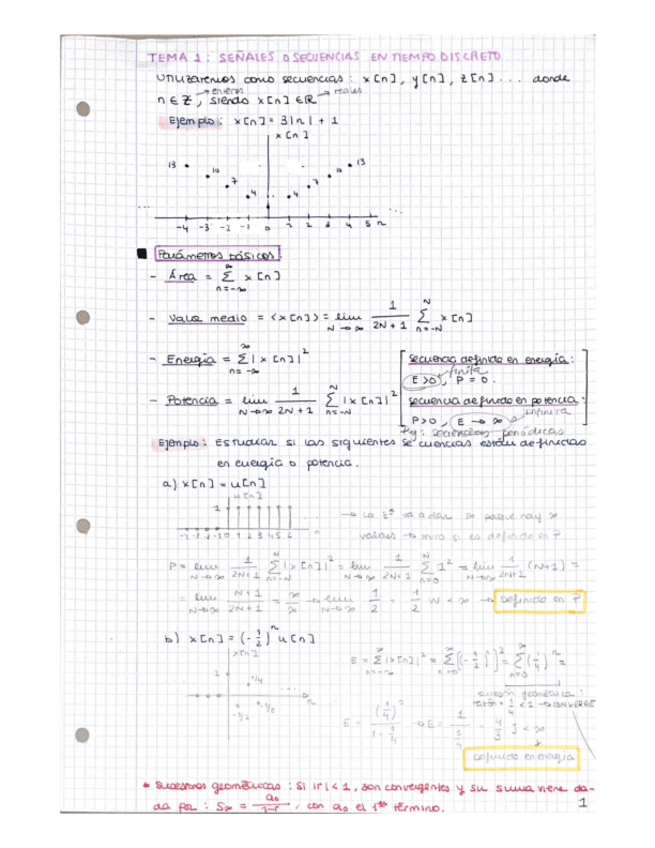 TEMA 1: SEÑALES O SECUENCIAS EN TIEMPO DISCRETO
Utilizaremos como secuencias: x[n], y[n], z[n]... donde
n ∈ Z → enteros, siendo x[n] ∈ R → reales
Ejemplo: x[n] = 3|n| + 1
x[n]
13 10 7 4 4 7 10 13
... ...
-4 -3 -2 -1 0 1 2 3 4 5 n
Parámetros básicos:
- Área = ∑_{n=-∞}^{∞} x[n]
- Valor medio = <x[n]> = lim_{N→∞} 1/(2N+1) ∑_{n=-N}^{N} x[n]
- Energía = ∑_{n=-∞}^{∞} |x[n]|²
- Potencia = lim_{N→∞} 1/(2N+1) ∑_{n=-N}^{N} |x[n]|²
Secuencia definida en energía:
E>0, P = 0. finita
Secuencia definida en potencia:
P>0, E → ∞ infinita
Pej: secuencias periódicas
Ejemplo: Estudiar si las siguientes secuencias están definidas
en energía o potencia.
a) x[n] = u[n]
u[n]
1
-1 0 1 2 3 4 5 6 n
valores → miro si es definido en P
P = lim_{N→∞} 1/(2N+1) ∑_{n=-N}^{N} |x[n]|² = lim_{N→∞} 1/(2N+1) ∑_{n=0}^{N} 1² = lim_{N→∞} 1/(2N+1) (N+1) =
= lim_{N→∞} (N+1)/(2N+1) = ∞/∞ → lim_{N→∞} 1/2 = 1/2 W < ∞ → Definida en P
b) x[n] = (-1/2)^n u[n]
x[n]
1
1/4
-1/2
n
E = ∑_{n=-∞}^{∞} |x[n]|² = ∑_{n=0}^{∞} [(-1/2)^n]² = ∑_{n=0}^{∞} (1/4)^n =
sucesión geométrica:
razón = 1/4 < 1 → CONVERGE
E = (1/4)^0 / (1 - 1/4) → E = 1/(3/4) = 4/3 J < ∞
Definida en energía
* Sucesiones geométricas: Si |r| < 1, son convergentes y su suma viene da-
da por: S∞ = a₀/(1-r), con a₀ el 1er término.
1